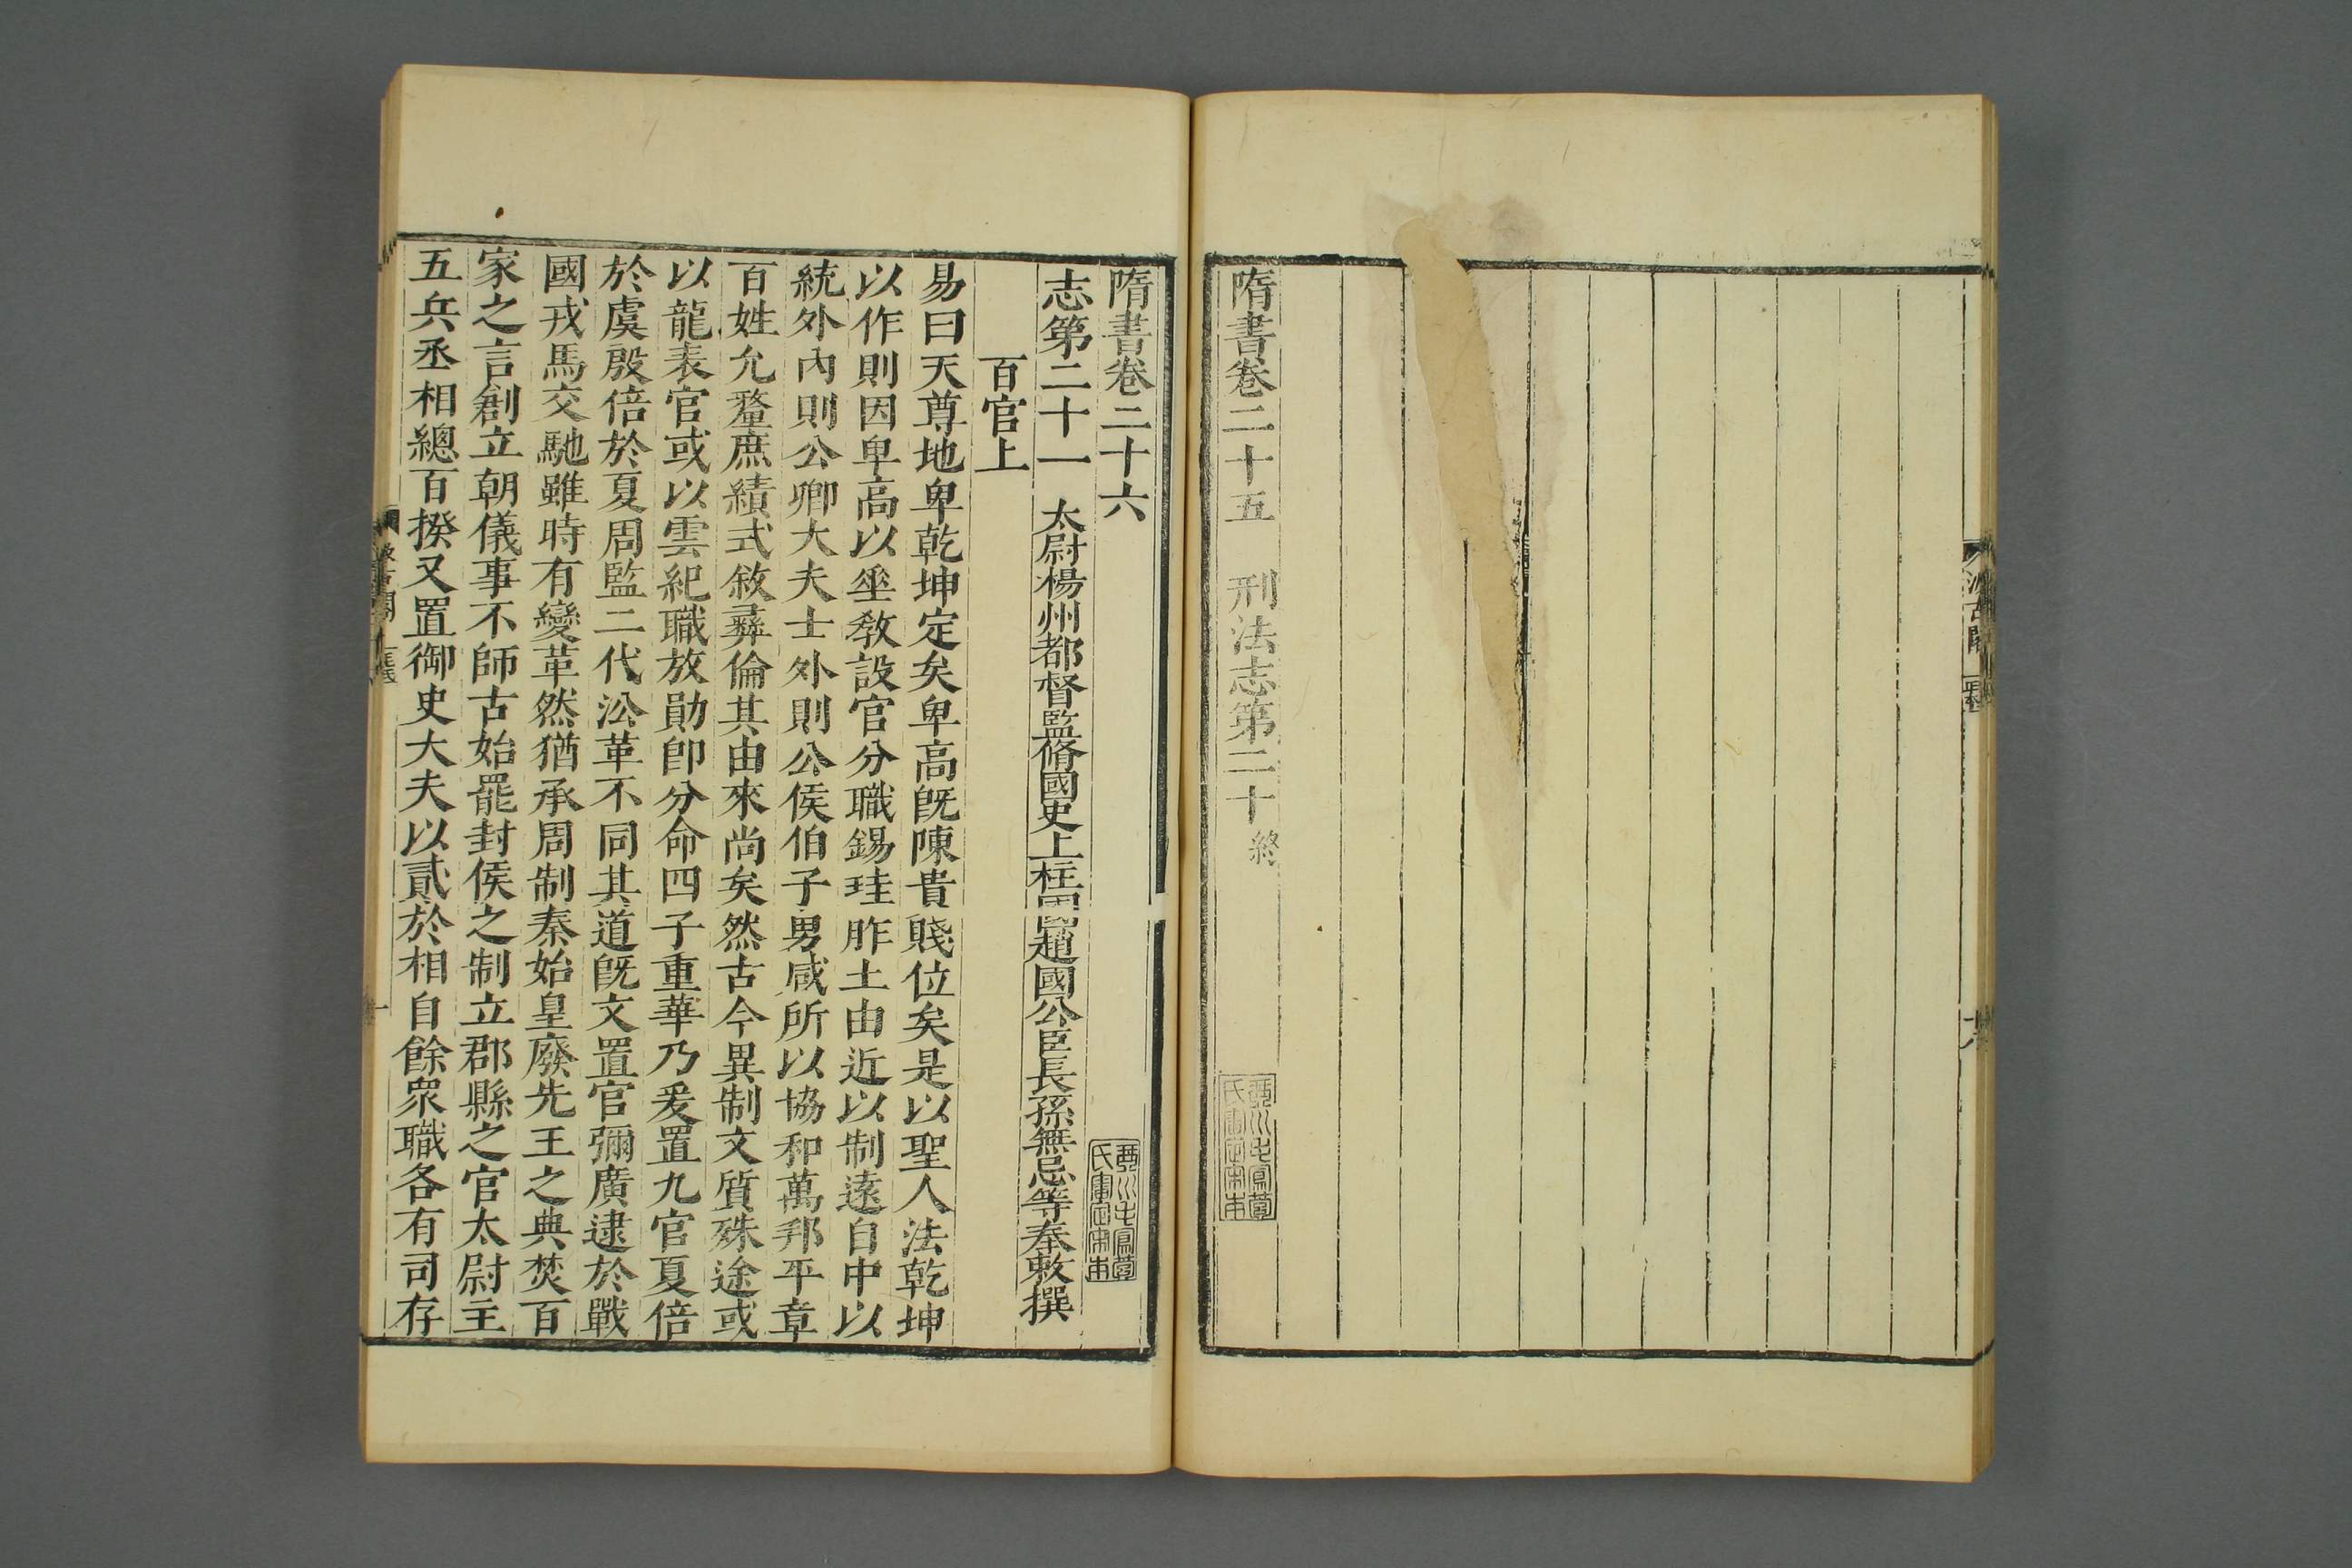 隋書卷二十五　刑法志第二十終
隋書卷二十六
志第二十一　太尉楊州都督監脩國史上柱國趙國公臣長孫無忌等奉敕撰
百官上
易曰天尊地卑乾坤定矣卑高旣陳貴賤位矣是以聖人法乾坤
以作則因卑高以垂教設官分職錫珪胙土由近以制遠自中以
統外內則公卿大夫士外則公侯伯子男咸所以協和萬邦平章
百姓允釐庶績式敘彝倫其由來尚矣然古今異制文質殊途或
以龍表官或以雲紀職放勛卽分命四子重華乃爰置九官夏倍
於虞殷倍於夏周監二代沿革不同其道旣文置官彌廣逮於戰
國戎馬交馳雖時有變革然猶承周制秦始皇廢先王之典焚百
家之言創立朝儀事不師古始罷封侯之制立郡縣之官太尉主
五兵丞相總百揆又置御史大夫以貳於相自餘衆職各有司存